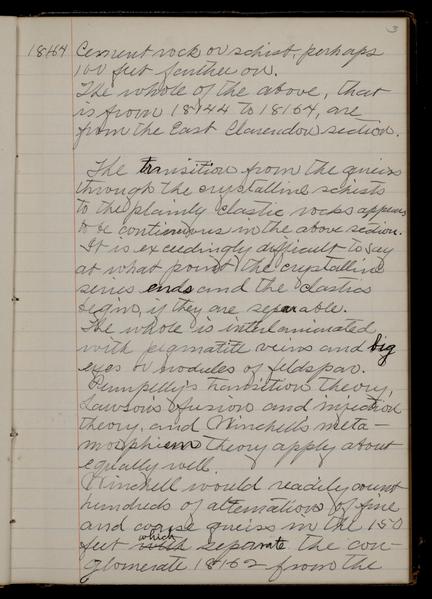 3
18164 Cement rock or schist, perhaps
100 feet farther on.
The whole of the above, that
is from 18144 to 18164, are
from the East Clarendon section.
The transition from the gneiss
through the crystalline schists
to the plainly clastic rocks appears
to be continuous in the above section.
It is exceedingly difficult to say
at what point the crystalline
series ends and the clastics
begin, if they are separable.
The whole is interlaminated
with pegmatite veins and big
eyes or nodules of feldspar.
Pumpelly's transition theory,
Lawson's fusion and injection
theory, and Winchell's meta-
morphism theory apply about
equally well.
Winchell would readily count
hundreds of alternations of fine
and coarse gneiss in the 150
feet which separate the con-
glomerate 18162 from the